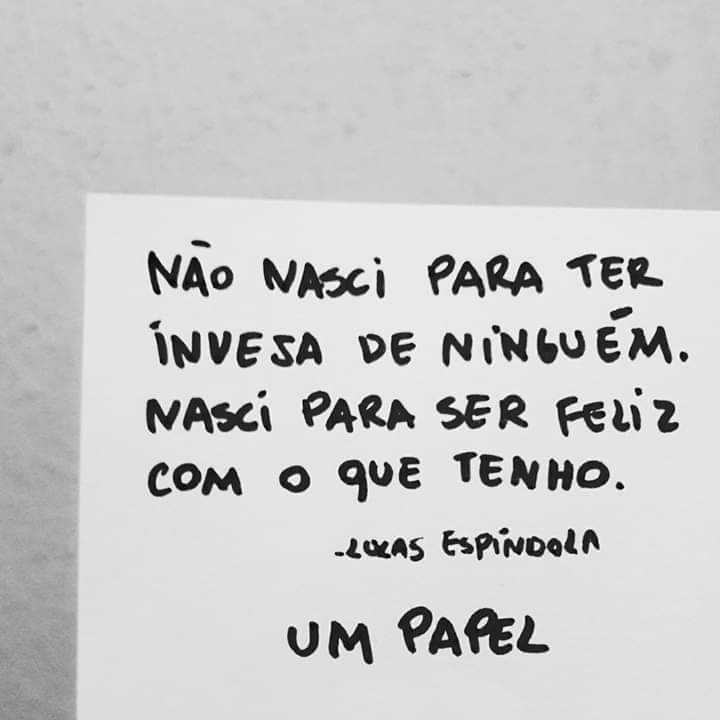 NÃO NASCI PARA TER
INVESA DE NINGUÉM.
NASCI PARA SER FELIZ
COM O QUE TENHO.
-LUCAS ESPÍNDOLA
UM PAPEL